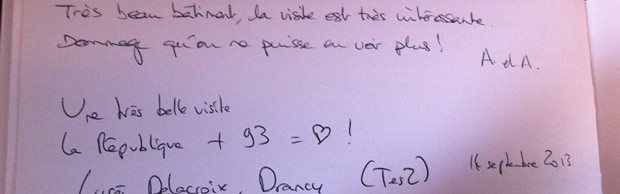 Très beau bâtiment, la visite est très intéressante.
Dommage qu'on ne puisse en voir plus !
A et A.
Une très belle visite
la République + 93 = ♡ !
14 septembre 2013
Delacroix, Drancy (TesZ)